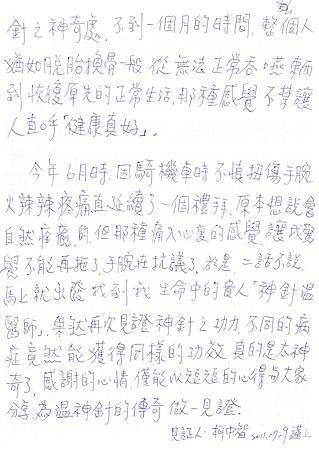 針之神奇處，不到一個月的時間，整個人
猶如脫胎換骨一般，從無法正常吞嚥東西
到恢復原先的正常生活，那種感覺不禁讓
人直呼「健康真好」。
今年6月時，因騎機車時不慎扭傷手腕
火辣辣疼痛直延續了一個禮拜，原本想說會
自然痊癒的，但那種痛入心扉的感覺讓我驚
覺不能再拖了，手腕在抗議了，於是，二話不說
馬上就出發找到我生命中的貴人「神針溫
醫師」，果然再次見證神針之功力，不同的病
症竟然能獲得同樣的功效，真的是太神
奇了，感謝的心情，僅能以短短的心得與大家
分享，為溫神針的傳奇做一見證。
見証人：柯中智 2011.7.9 謹上